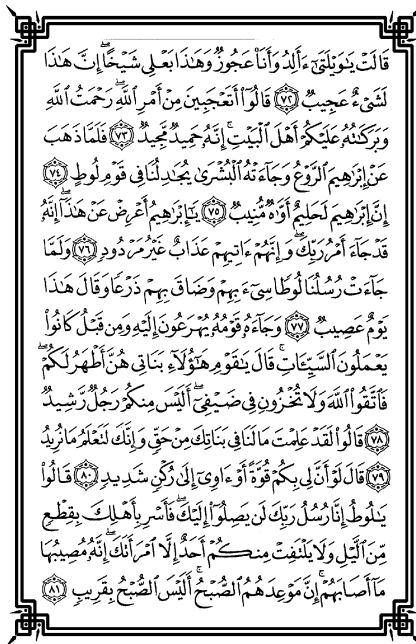 قَالَتْ يَٰوَيْلَتَىٰٓ ءَأَلِدُ وَأَنَا۠ عَجُوزٌ وَهَٰذَا بَعْلِى شَيْخًا ۖ إِنَّ هَٰذَا
لَشَىْءٌ عَجِيبٌ ﴿٧٢﴾ قَالُوٓا۟ أَتَعْجَبِينَ مِنْ أَمْرِ ٱللَّهِ ۖ رَحْمَتُ ٱللَّهِ
وَبَرَكَٰتُهُۥ عَلَيْكُمْ أَهْلَ ٱلْبَيْتِ ۚ إِنَّهُۥ حَمِيدٌ مَّجِيدٌ ﴿٧٣﴾ فَلَمَّا ذَهَبَ
عَنْ إِبْرَٰهِيمَ ٱلرَّوْعُ وَجَآءَتْهُ ٱلْبُشْرَىٰ يُجَٰدِلُنَا فِى قَوْمِ لُوطٍ ﴿٧٤﴾
إِنَّ إِبْرَٰهِيمَ لَحَلِيمٌ أَوَّٰهٌ مُّنِيبٌ ﴿٧٥﴾ يَٰٓإِبْرَٰهِيمُ أَعْرِضْ عَنْ هَٰذَآ ۖ إِنَّهُۥ
قَدْ جَآءَ أَمْرُ رَبِّكَ ۖ وَإِنَّهُمْ ءَاتِيهِمْ عَذَابٌ غَيْرُ مَرْدُودٍ ﴿٧٦﴾ وَلَمَّا
جَآءَتْ رُسُلُنَا لُوطًا سِىٓءَ بِهِمْ وَضَاقَ بِهِمْ ذَرْعًا وَقَالَ هَٰذَا
يَوْمٌ عَصِيبٌ ﴿٧٧﴾ وَجَآءَهُۥ قَوْمُهُۥ يُهْرَعُونَ إِلَيْهِ وَمِن قَبْلُ كَانُوا۟
يَعْمَلُونَ ٱلسَّيِّـَٔاتِ ۚ قَالَ يَٰقَوْمِ هَٰٓؤُلَآءِ بَنَاتِى هُنَّ أَطْهَرُ لَكُمْ ۖ
فَٱتَّقُوا۟ ٱللَّهَ وَلَا تُخْزُونِ فِى ضَيْفِىٓ ۖ أَلَيْسَ مِنكُمْ رَجُلٌ رَّشِيدٌ
﴿٧٨﴾ قَالُوا۟ لَقَدْ عَلِمْتَ مَا لَنَا فِى بَنَاتِكَ مِنْ حَقٍّ وَإِنَّكَ لَتَعْلَمُ مَا نُرِيدُ
﴿٧٩﴾ قَالَ لَوْ أَنَّ لِى بِكُمْ قُوَّةً أَوْ ءَاوِىٓ إِلَىٰ رُكْنٍ شَدِيدٍ ﴿٨٠﴾ قَالُوا۟
يَٰلُوطُ إِنَّا رُسُلُ رَبِّكَ لَن يَصِلُوٓا۟ إِلَيْكَ ۖ فَأَسْرِ بِأَهْلِكَ بِقِطْعٍ
مِّنَ ٱلَّيْلِ وَلَا يَلْتَفِتْ مِنكُمْ أَحَدٌ إِلَّا ٱمْرَأَتَكَ ۖ إِنَّهُۥ مُصِيبُهَا
مَآ أَصَابَهُمْ ۚ إِنَّ مَوْعِدَهُمُ ٱلصُّبْحُ ۚ أَلَيْسَ ٱلصُّبْحُ بِقَرِيبٍ ﴿٨١﴾